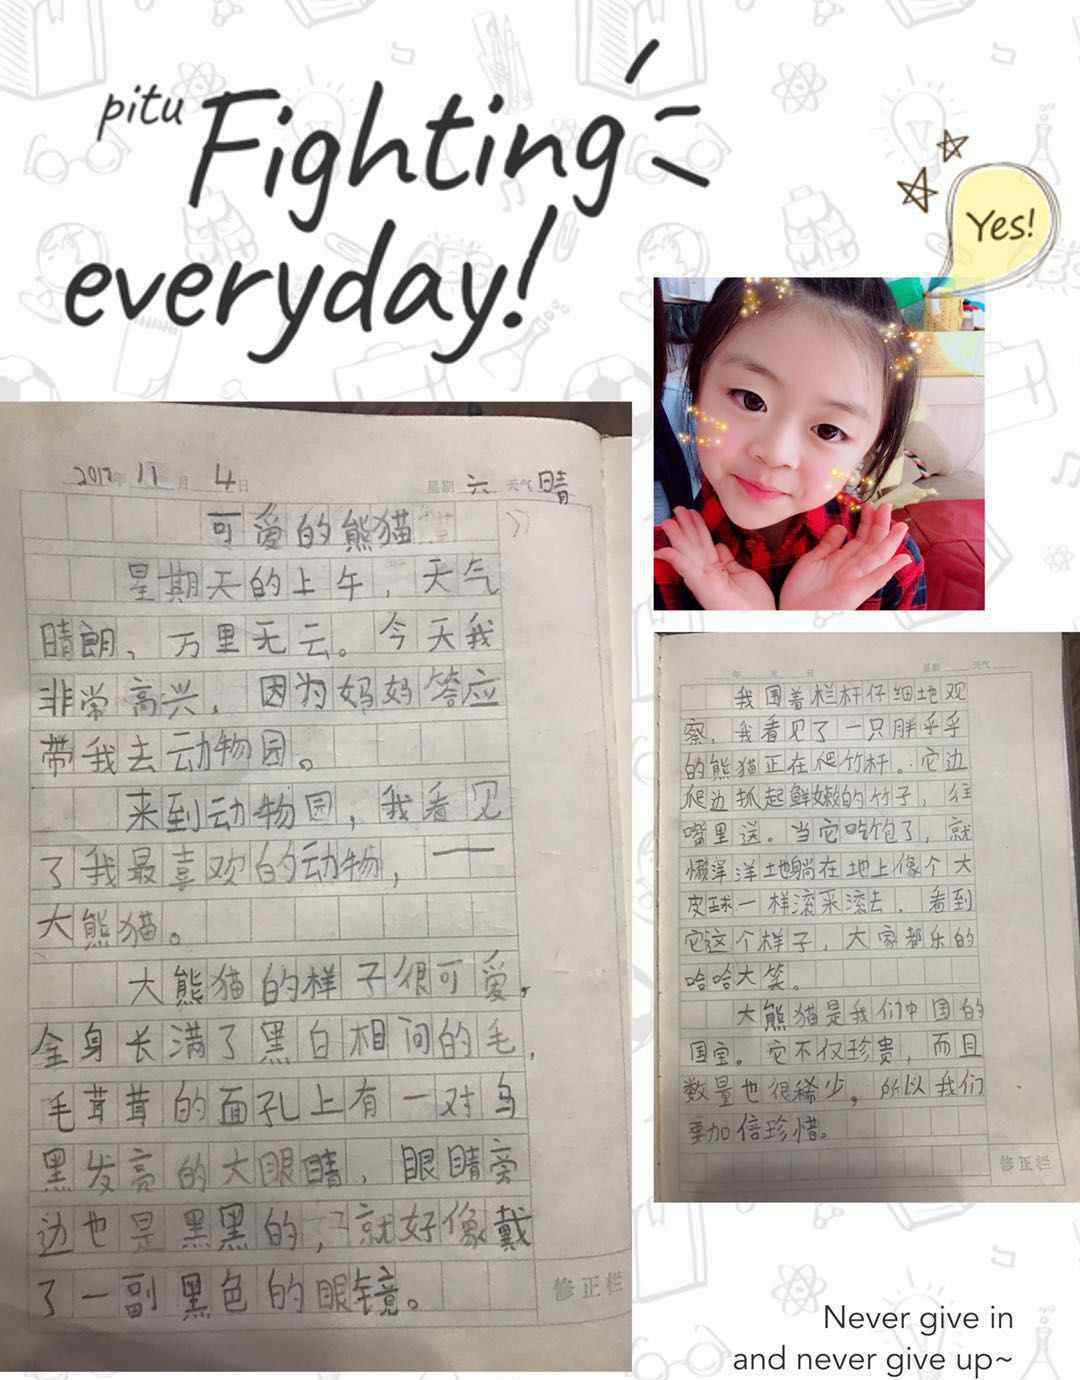 pitu
Fighting
everyday!
Yes!
2017年 11月 4日 星期六 天气晴
可爱的熊猫
星期天的上午，天气
晴朗、万里无云。今天我
非常高兴，因为妈妈答应
带我去动物园。
来到动物园，我看见
了我最喜欢的动物，——
大熊猫。
大熊猫的样子很可爱，
全身长满了黑白相间的毛，
毛茸茸的面孔上有一对乌
黑发亮的大眼睛，眼睛旁
边也是黑黑的，就好像戴
了一副黑色的眼镜。
修正栏
年 月 日 星期 天气
我围着栏杆仔细地观
察，我看见了一只胖乎乎
的熊猫正在爬竹杆。它边
爬边抓起鲜嫩的竹子，往
嘴里送。当它吃饱了，就
懒洋洋地躺在地上像个大
皮球一样滚来滚去，看到
它这个样子，大家都乐的
哈哈大笑。
大熊猫是我们中国的
国宝。它不仅珍贵，而且
数量也很稀少，所以我们
要加倍珍惜。
修正栏
Never give in
and never give up~